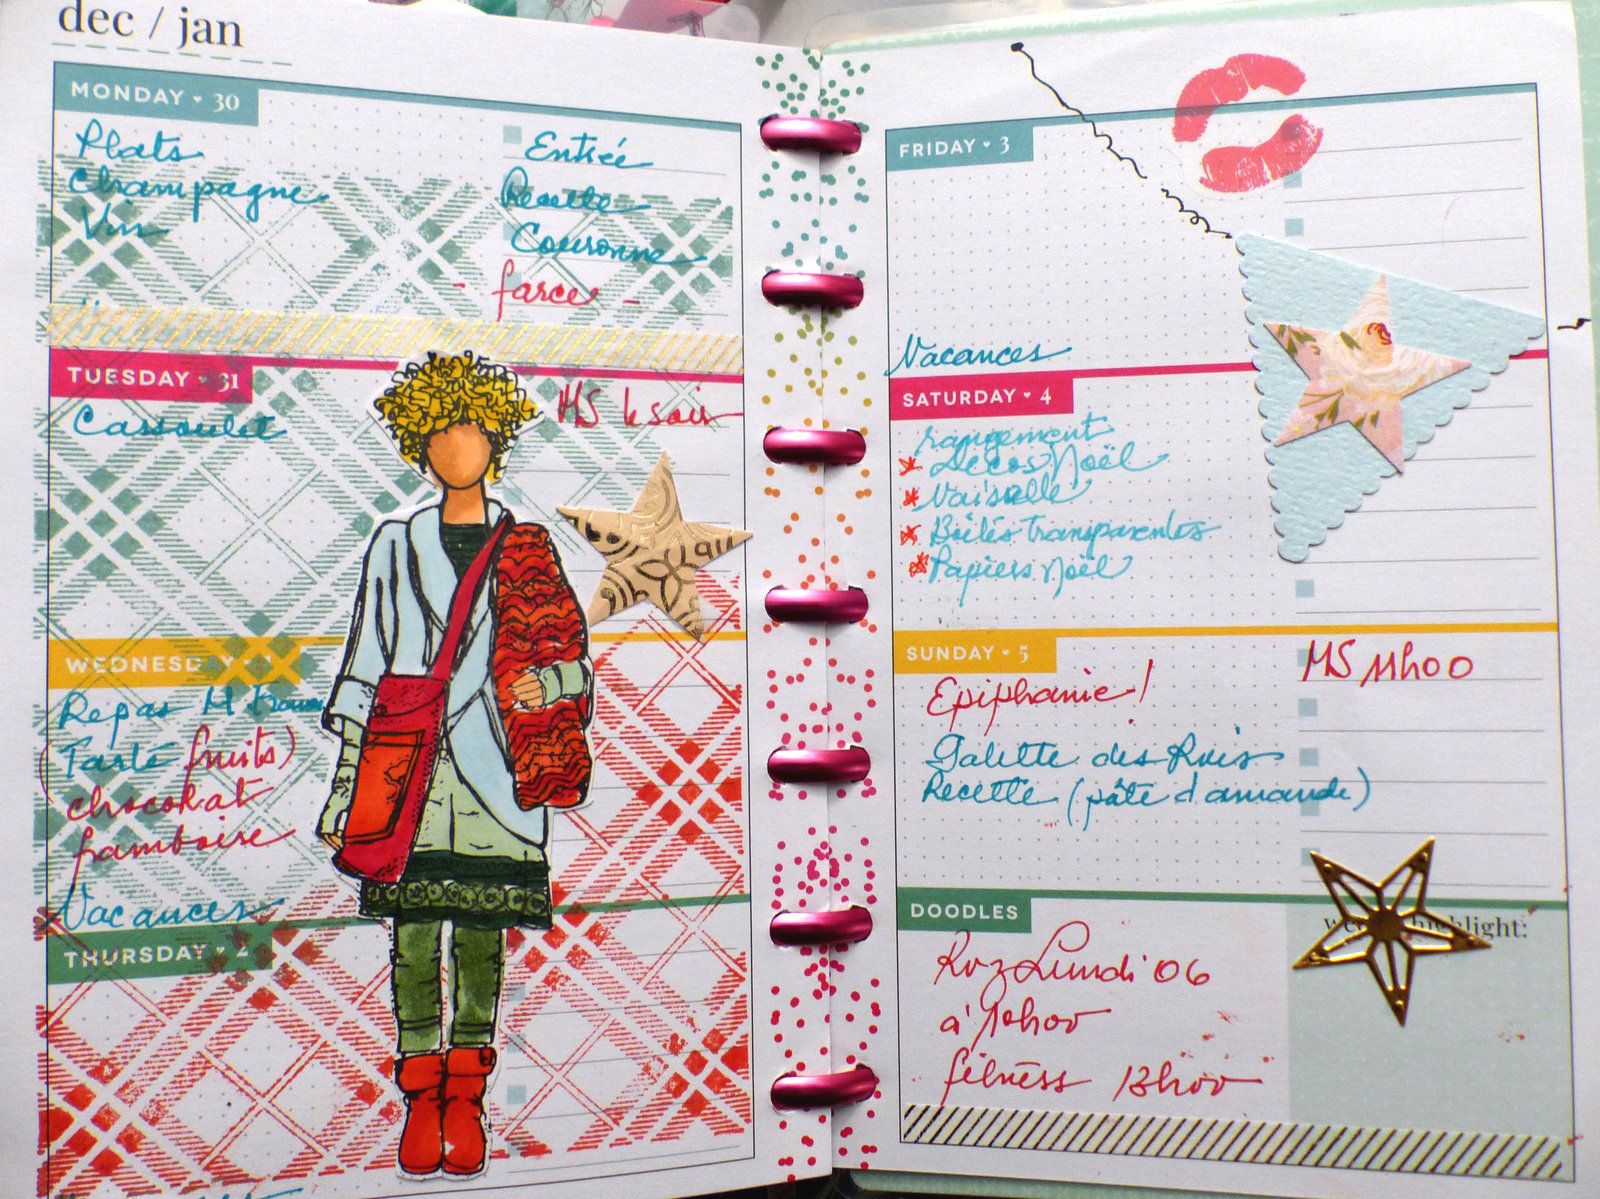 dec / jan
MONDAY ♥ 30
Plats
Champagne
Vin
Entrée
Recette
Couronne
- farce -
TUESDAY ♥ 31
Cassoulet
MS le soir
WEDNESDAY
Repas M
(Tarte fruits)
chocolat
framboise
Vacances
THURSDAY ♥ 2
FRIDAY ♥ 3
Vacances
SATURDAY ♥ 4
rangement
Décos Noël
Vaisselle
Boîtes transparentes
Papiers Noël
SUNDAY ♥ 5
MS 11h00
Epiphanie !
Galette des Rois
Recette (pâte d'amande)
DOODLES
highlight:
Lundi 06
à
fitness 13h00